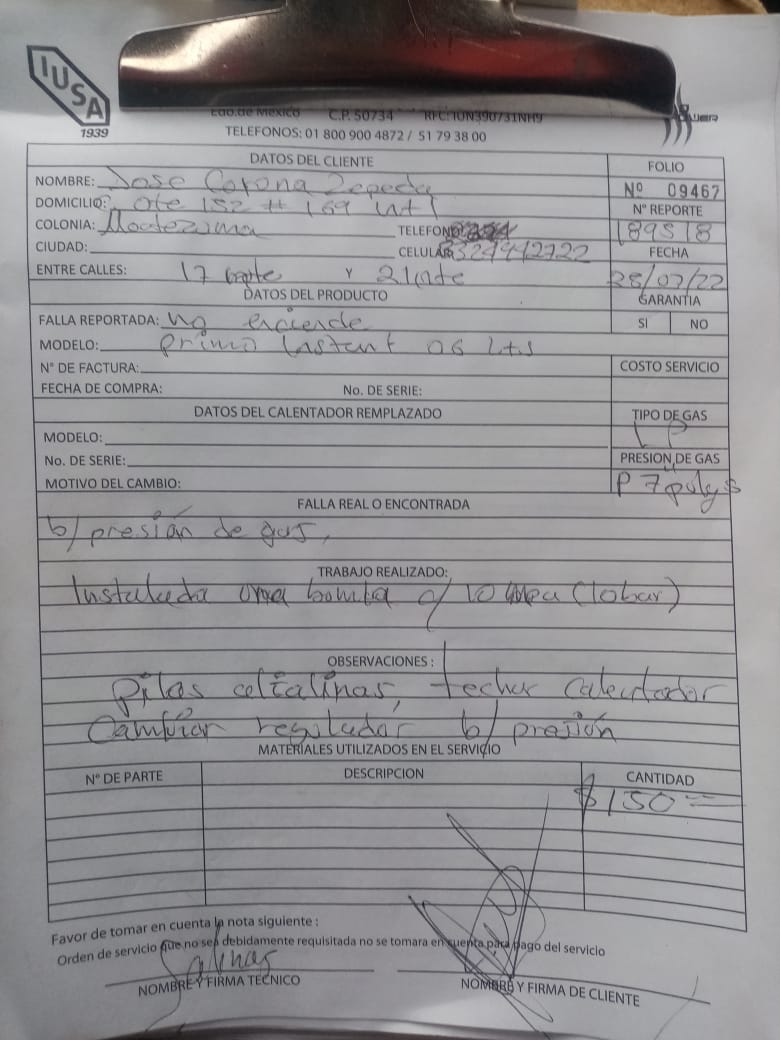 IUSA
1939
Edo.de Mexico C.P. 50734 RFC: IUN390731NH9
TELEFONOS: 01 800 900 4872 / 51 79 38 00
DATOS DEL CLIENTE
FOLIO
NOMBRE: Jose Corona Zepeda
Nº 09467
DOMICILIO: Ote 152 # 169 int 1
N° REPORTE
COLONIA: Moctezuma
TELEFONO:
189518
CIUDAD:
CELULAR:
FECHA
ENTRE CALLES: 17 Y 21
28/07/22
DATOS DEL PRODUCTO
GARANTIA
FALLA REPORTADA: no enciende
SI NO
MODELO: primo Instant 06 Lts
N° DE FACTURA:
COSTO SERVICIO
FECHA DE COMPRA: No. DE SERIE:
DATOS DEL CALENTADOR REMPLAZADO
TIPO DE GAS
MODELO:
LP
No. DE SERIE:
PRESION DE GAS
MOTIVO DEL CAMBIO:
P 7 pulgs
FALLA REAL O ENCONTRADA
b/ presión de gas,
TRABAJO REALIZADO:
Instalada una bomba c/ 10 (1 obar)
OBSERVACIONES :
Pilas techar Calentador
Cambiar regulador b/ presión
MATERIALES UTILIZADOS EN EL SERVICIO
N° DE PARTE DESCRIPCION CANTIDAD
$150
Favor de tomar en cuenta la nota siguiente :
Orden de servicio que no sea debidamente requisitada no se tomara en cuenta para pago del servicio
Salinas
NOMBRE Y FIRMA TECNICO NOMBRE Y FIRMA DE CLIENTE